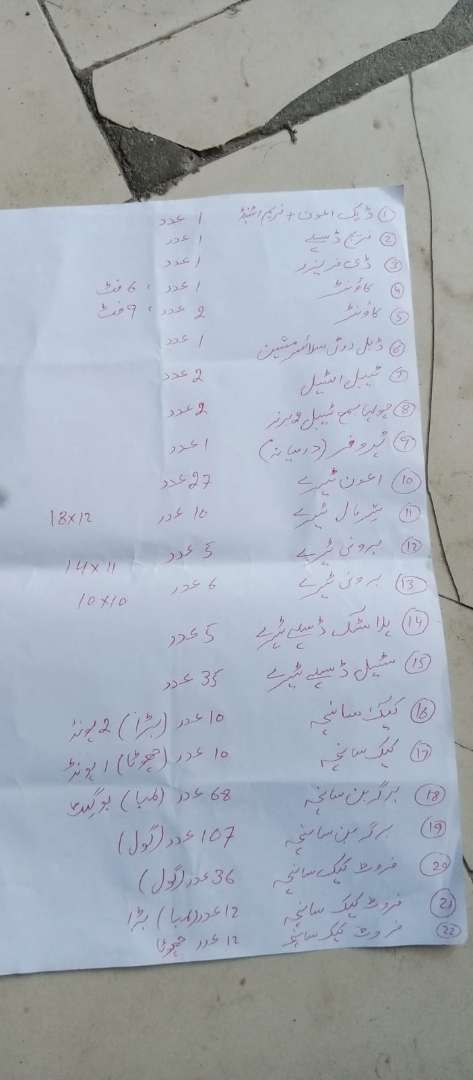 ① ڈیک اوون + فریم اسٹینڈ 1 عدد
② فریج ڈسپلے 1 عدد
③ ڈی فریزر 1 عدد
④ کاؤنٹر 1 عدد، 6 فٹ
⑤ کاؤنٹر 2 عدد، 9 فٹ
⑥ ڈبل رول سلائسر مشین 1 عدد
⑦ ٹیبل اسٹیل 2 عدد
⑧ چولہا مع ٹیبل 2 برنر 2 عدد
⑨ پروفر (درمیانہ) 1 عدد
⑩ اوون ٹرے 27 عدد
⑪ ٹرے 10 عدد 18x12
⑫ برونی ٹرے 5 عدد 14x11
⑬ برونی ٹرے 6 عدد 10x10
⑭ پلاسٹک ڈسپلے ٹرے 5 عدد
⑮ سٹیل ڈسپلے ٹرے 35 عدد
⑯ کیک سانچہ 10 عدد (بڑا) 2 پونڈ
⑰ کیک سانچہ 10 عدد (چھوٹا) 1 پونڈ
⑱ برگر بن سانچہ 68 عدد (لمبا)
⑲ برگر بن سانچہ 107 عدد (گول)
⑳ فروٹ کیک سانچہ 36 عدد (گول)
㉑ فروٹ کیک سانچہ 12 عدد (لمبا) بڑا
㉒ فروٹ کیک سانچہ 12 عدد چھوٹا